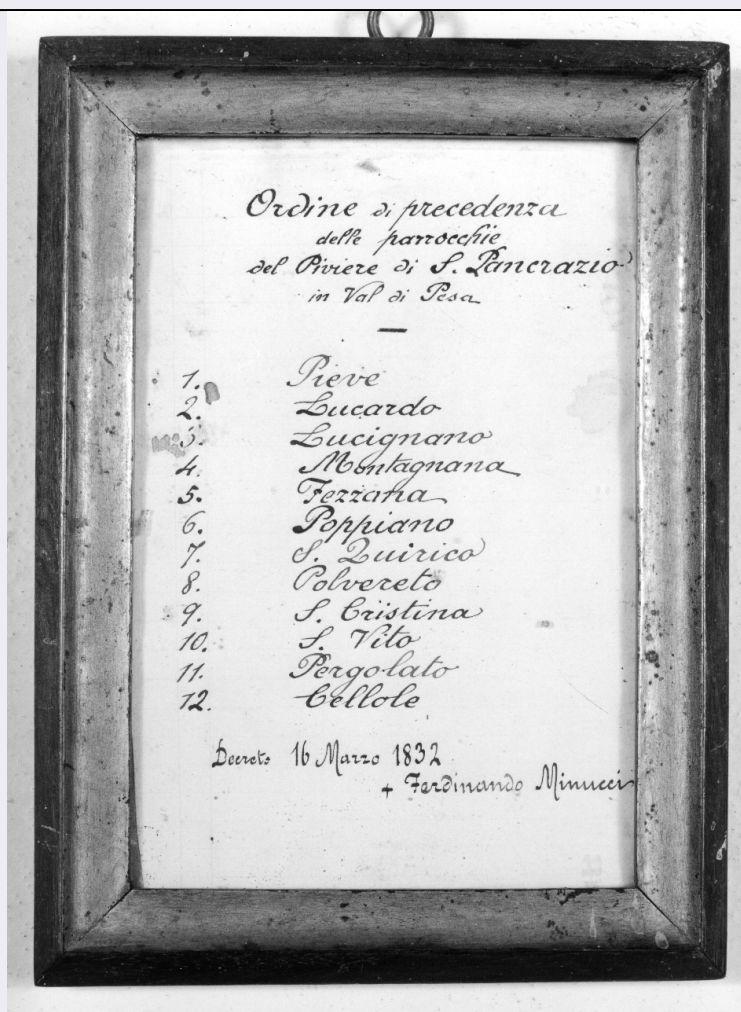 Ordine di precedenza
delle parrocchie
del Piviere di S. Pancrazio
in Val di Pesa
—
1. Pieve
2. Lucardo
3. Lucignano
4. Montagnana
5. Fezzana
6. Poppiano
7. S. Quirico
8. Polvereto
9. S. Cristina
10. S. Vito
11. Pergolato
12. Cellole
Decreto 16 Marzo 1832
+ Ferdinando Minucci